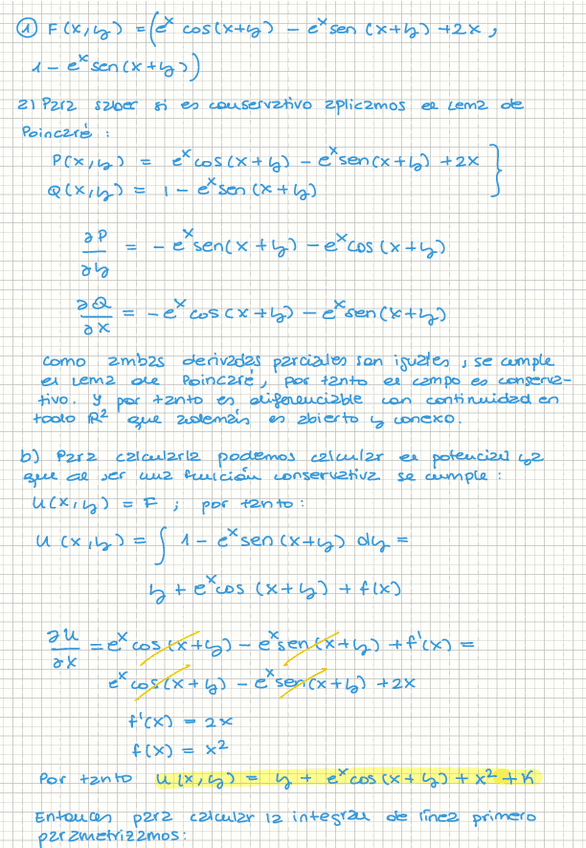 ① F(x,y) = (eˣ cos(x+y) - eˣ sen (x+y) +2x ,
1 - eˣ sen(x+y))
a) Para saber si es conservativo aplicamos el lema de
Poincaré :
P(x,y) = eˣ cos(x+y) - eˣ sen(x+y) +2x }
Q(x,y) = 1 - eˣ sen (x+y)
∂P/∂y = - eˣ sen(x+y) - eˣ cos (x+y)
∂Q/∂x = - eˣ cos(x+y) - eˣ sen(x+y)
como ambas derivadas parciales son iguales , se cumple
el lema de Poincaré, por tanto el campo es conserva-
tivo. Y por tanto es diferenciable con continuidad en
todo ℝ² que además es abierto y conexo.
b) Para calcularla podemos calcular el potencial ya
que al ser una función conservativa se cumple :
U(x,y) = F ; por tanto :
U (x,y) = ∫ 1 - eˣ sen (x+y) dy =
y + eˣ cos (x+y) + f(x)
∂U/∂x = eˣ cos(x+y) - eˣ sen(x+y) + f'(x) =
eˣ cos(x+y) - eˣ sen(x+y) +2x
f'(x) = 2x
f(x) = x²
Por tanto U(x,y) = y + eˣ cos(x+y) + x² + K
Entonces para calcular la integral de línea primero
parametrizamos: